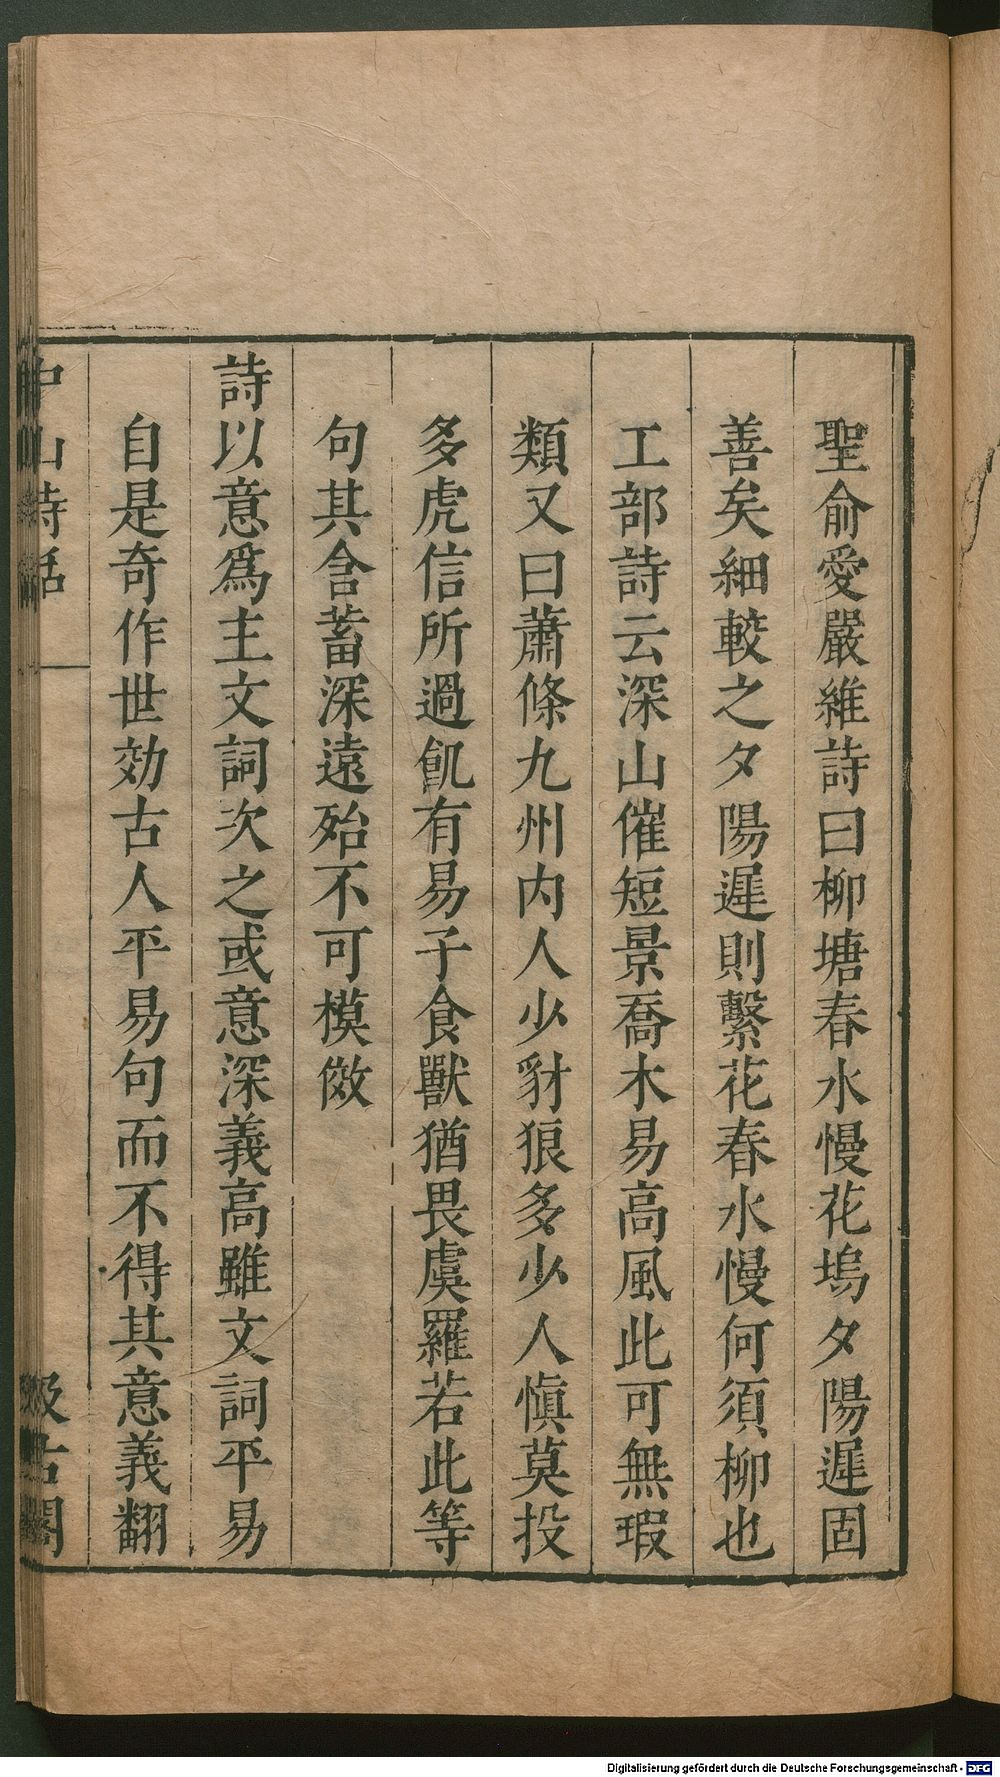 聖俞愛嚴維詩曰柳塘春水慢花塢夕陽遲固
善矣細較之夕陽遲則繫花春水慢何須柳也
工部詩云深山催短景喬木易高風此可無瑕
類又曰蕭條九州内人少豺狼多少人愼莫投
多虎信所過飢有易子食獸猶畏虞羅若此等
句其含蓄深遠殆不可模傚
詩以意爲主文詞次之或意深義高雖文詞平易
自是奇作世効古人平易句而不得其意義翻
中山詩話
汲古閣
Digitalisierung gefördert durch die Deutsche Forschungsgemeinschaft - DFG